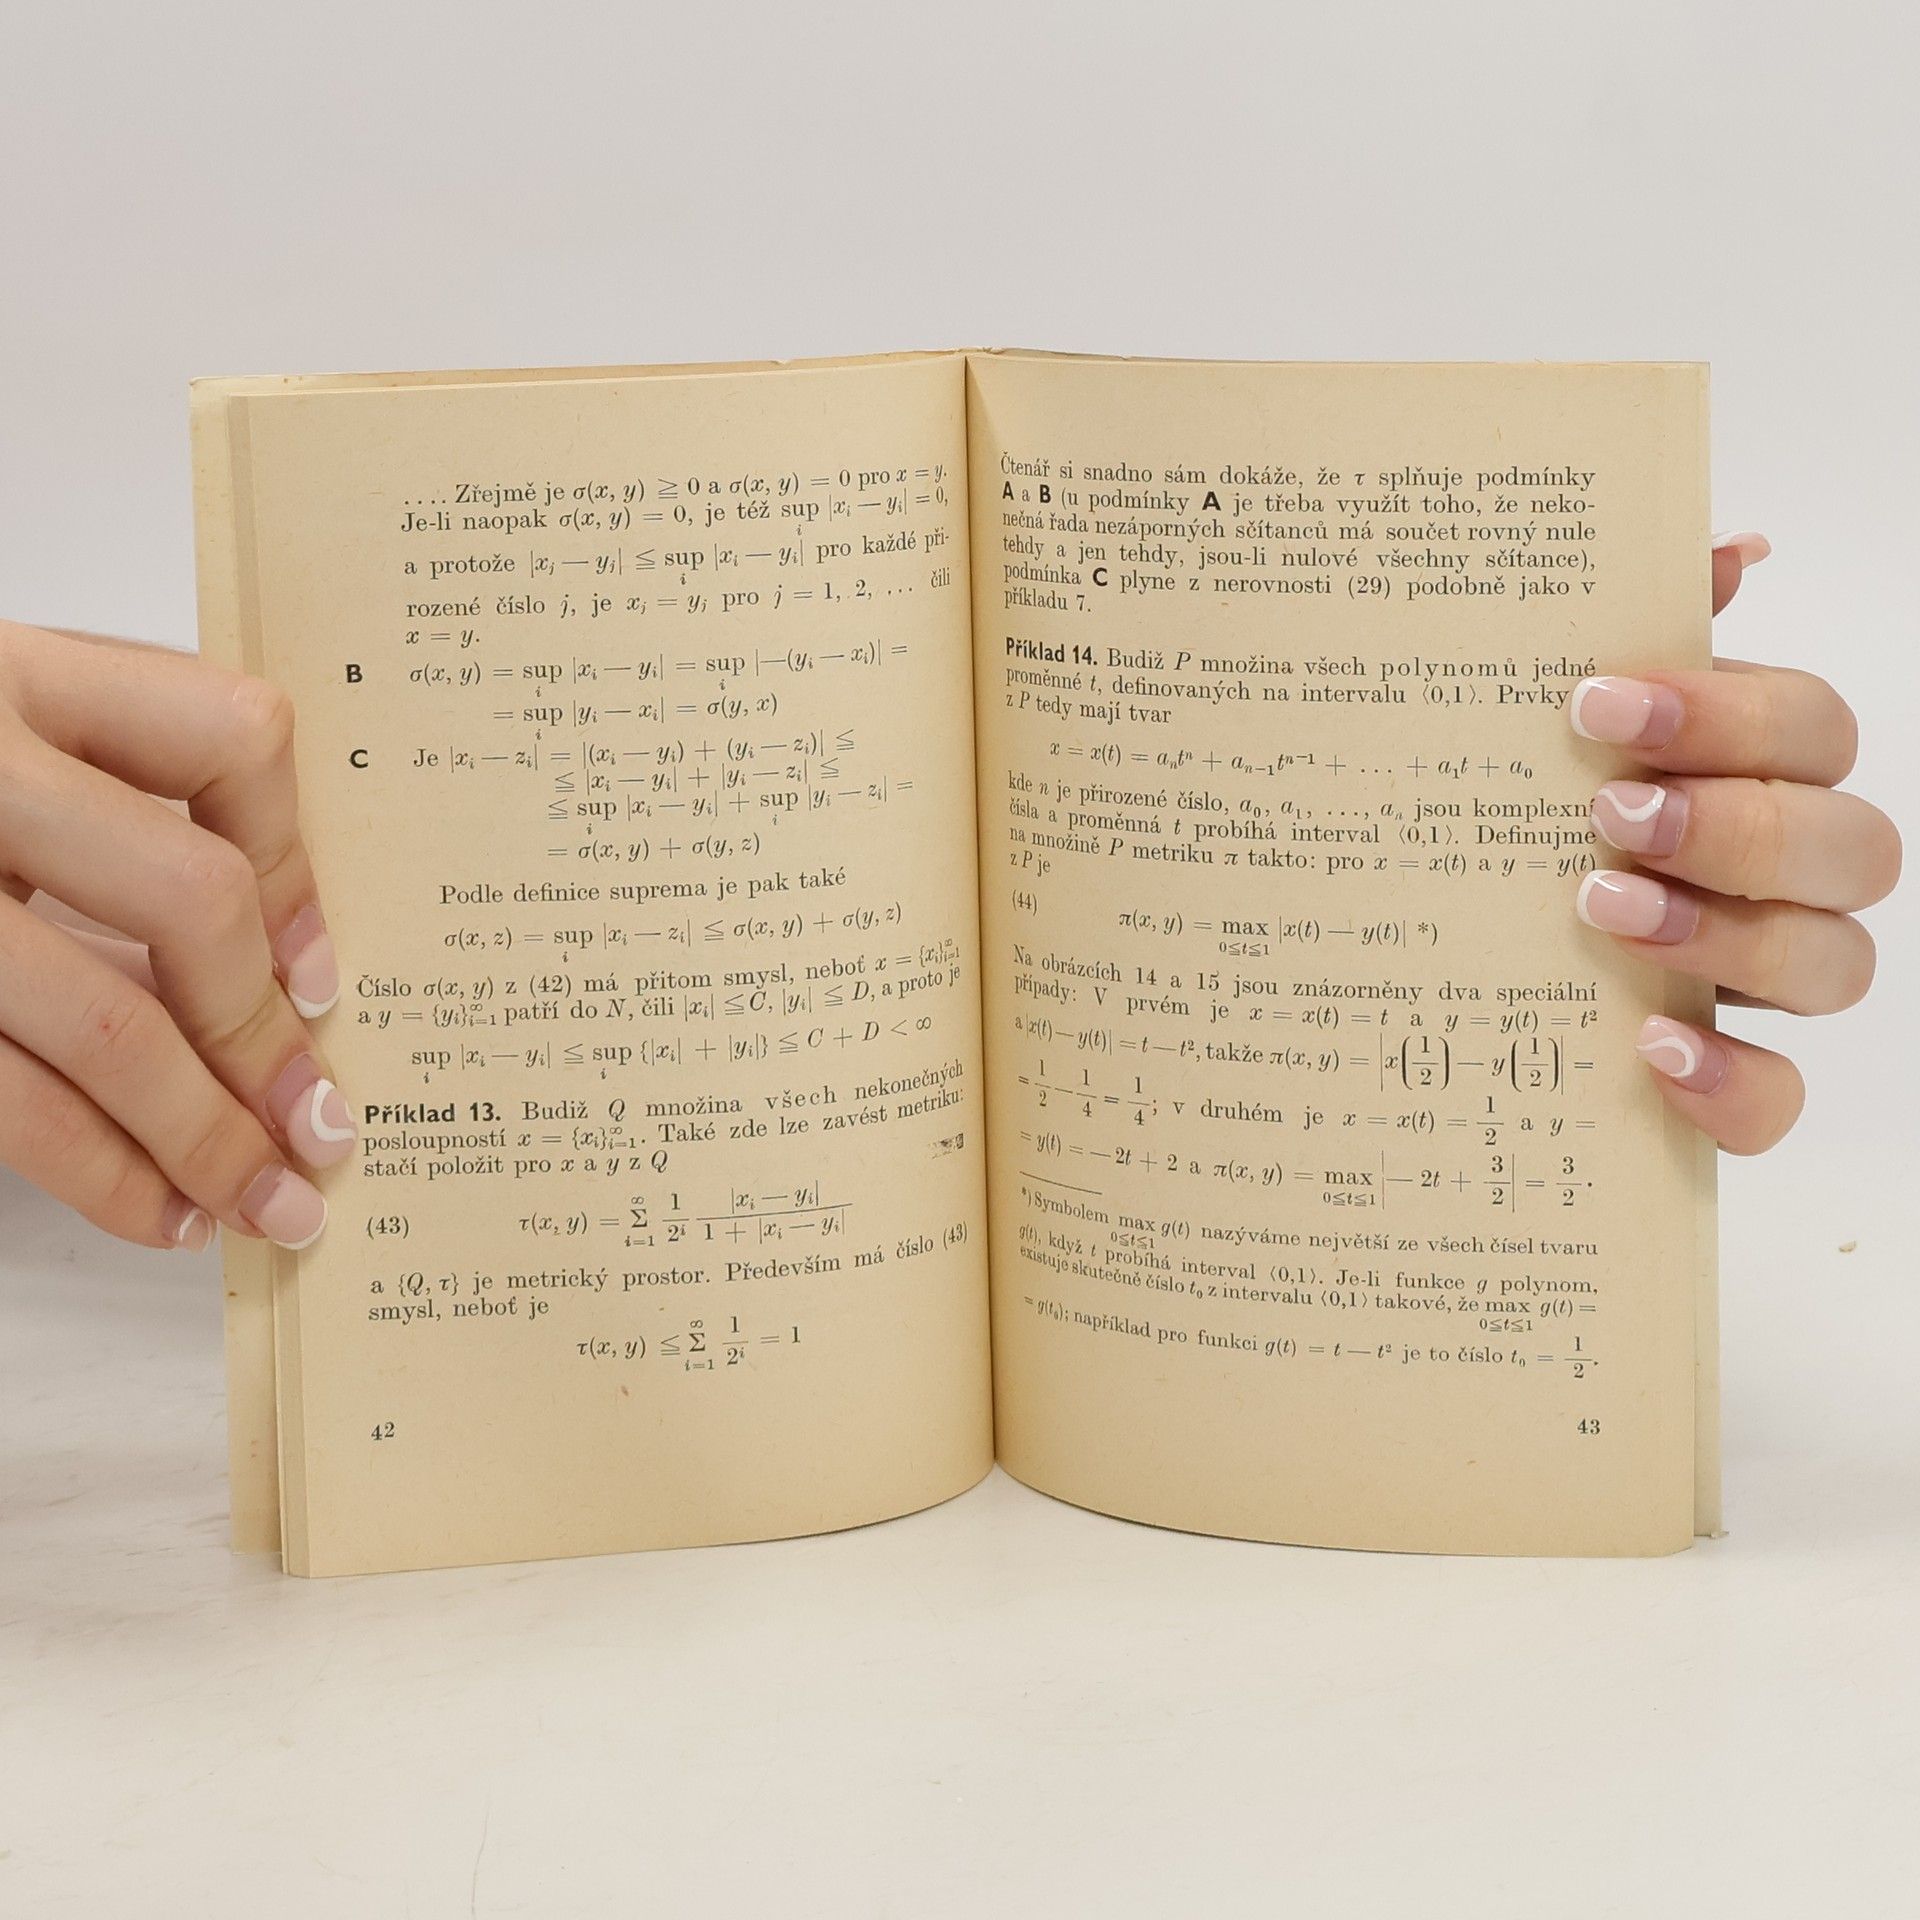 .... Zřejmě je σ(x, y) ≧ 0 a σ(x, y) = 0 pro x = y.
Je-li naopak σ(x, y) = 0, je též sup_i |x_i — y_i| = 0,
a protože |x_j — y_j| ≦ sup_i |x_i — y_i| pro každé při-
rozené číslo j, je x_j = y_j pro j = 1, 2, ... čili
x = y.
B σ(x, y) = sup_i |x_i — y_i| = sup_i |—(y_i — x_i)| =
= sup_i |y_i — x_i| = σ(y, x)
C Je |x_i — z_i| = |(x_i — y_i) + (y_i — z_i)| ≦
≦ |x_i — y_i| + |y_i — z_i| ≦
≦ sup_i |x_i — y_i| + sup_i |y_i — z_i| =
= σ(x, y) + σ(y, z)
Podle definice suprema je pak také
σ(x, z) = sup_i |x_i — z_i| ≦ σ(x, y) + σ(y, z)
Číslo σ(x, y) z (42) má přitom smysl, neboť x = {x_i}_{i=1}^∞
a y = {y_i}_{i=1}^∞ patří do N, čili |x_i| ≦ C, |y_i| ≦ D, a proto je
sup_i |x_i — y_i| ≦ sup_i {|x_i| + |y_i|} ≦ C + D < ∞
Příklad 13. Budiž Q množina všech nekonečných
posloupností x = {x_i}_{i=1}^∞. Také zde lze zavést metriku:
stačí položit pro x a y z Q
(43) τ(x, y) = Σ_{i=1}^∞ 1/2^i |x_i — y_i|/(1 + |x_i — y_i|)
a {Q, τ} je metrický prostor. Především má číslo (43)
smysl, neboť je
τ(x, y) ≦ Σ_{i=1}^∞ 1/2^i = 1
42
Čtenář si snadno sám dokáže, že τ splňuje podmínky
A a B (u podmínky A je třeba využít toho, že neko-
nečná řada nezáporných sčítanců má součet rovný nule
tehdy a jen tehdy, jsou-li nulové všechny sčítance),
podmínka C plyne z nerovnosti (29) podobně jako v
příkladu 7.
Příklad 14. Budiž P množina všech polynomů jedné
proměnné t, definovaných na intervalu ⟨0,1⟩. Prvky
z P tedy mají tvar
x = x(t) = a_n t^n + a_{n—1} t^{n—1} + ... + a_1 t + a_0
kde n je přirozené číslo, a_0, a_1, ..., a_n jsou komplexní
čísla a proměnná t probíhá interval ⟨0,1⟩. Definujme
na množině P metriku π takto: pro x = x(t) a y = y(t)
z P je
(44) π(x, y) = max_{0≦t≦1} |x(t) — y(t)| *)
Na obrázcích 14 a 15 jsou znázorněny dva speciální
případy: V prvém je x = x(t) = t a y = y(t) = t²
a |x(t) — y(t)| = t — t², takže π(x, y) = |x(1/2) — y(1/2)| =
= 1/2 — 1/4 = 1/4; v druhém je x = x(t) = 1/2 a y =
= y(t) = — 2t + 2 a π(x, y) = max_{0≦t≦1} |— 2t + 3/2| = 3/2.
*) Symbolem max_{0≦t≦1} g(t) nazýváme největší ze všech čísel tvaru
g(t), když t probíhá interval ⟨0,1⟩. Je-li funkce g polynom,
existuje skutečně číslo t_0 z intervalu ⟨0,1⟩ takové, že max_{0≦t≦1} g(t) =
= g(t_0); například pro funkci g(t) = t — t² je to číslo t_0 = 1/2.
43